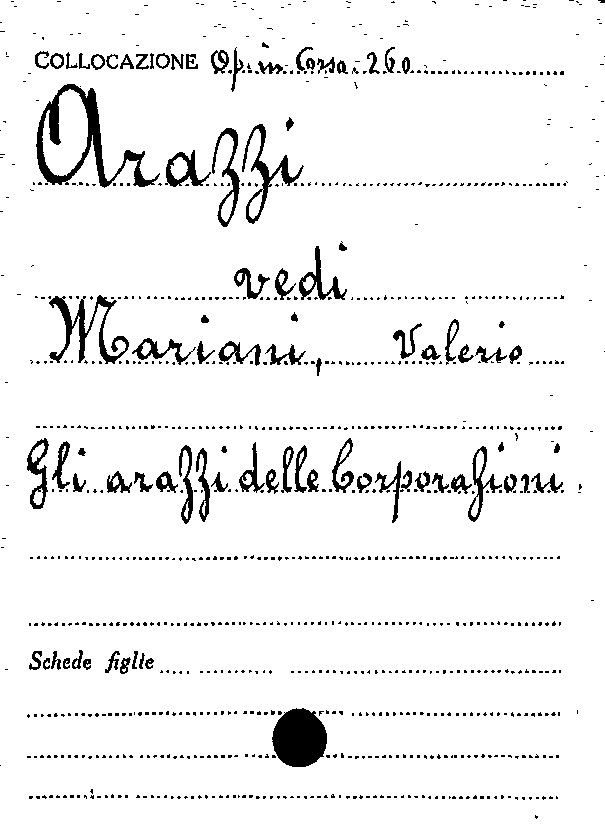 COLLOCAZIONE Op. in Corso. 260
Arazzi
vedi
Mariani, Valerio
Gli arazzi delle Corporazioni.
Schede figlie